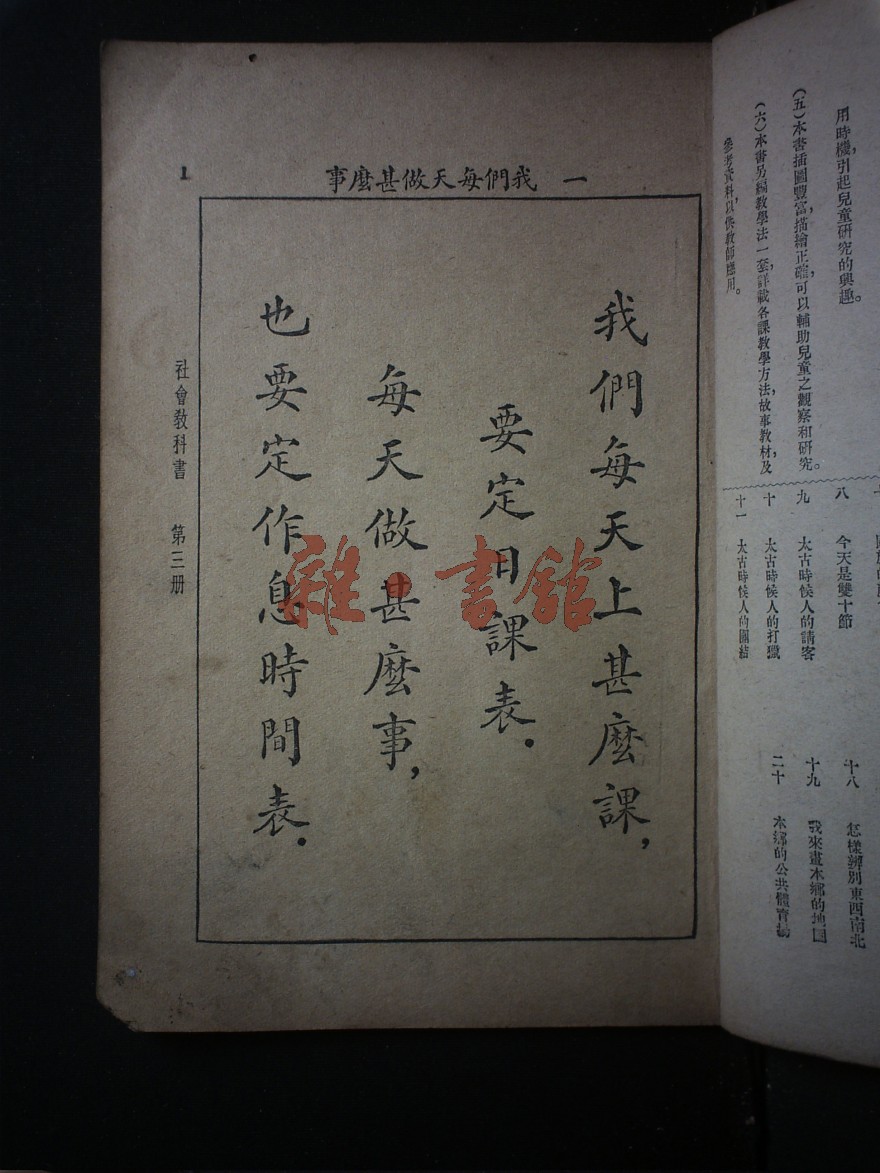 用時機，引起兒童研究的興趣。
（五）本書插圖豐富，描繪正確，可以輔助兒童之觀察和研究。
（六）本書另編教學法一套，詳載各課教學方法，故事教材，及
參考資料，以供教師應用。
八　今天是雙十節
九　太古時候人的請客
十　太古時候人的打獵
十一　太古時候人的團結
十八　怎樣辨別東西南北
十九　我來畫本鄉的地圖
二十　本鄉的公共體育場
一　我們每天做甚麼事
我們每天上甚麼課，
要定日課表．
每天做甚麼事，
也要定作息時間表．
社會教科書　第三册
1
雜·書館